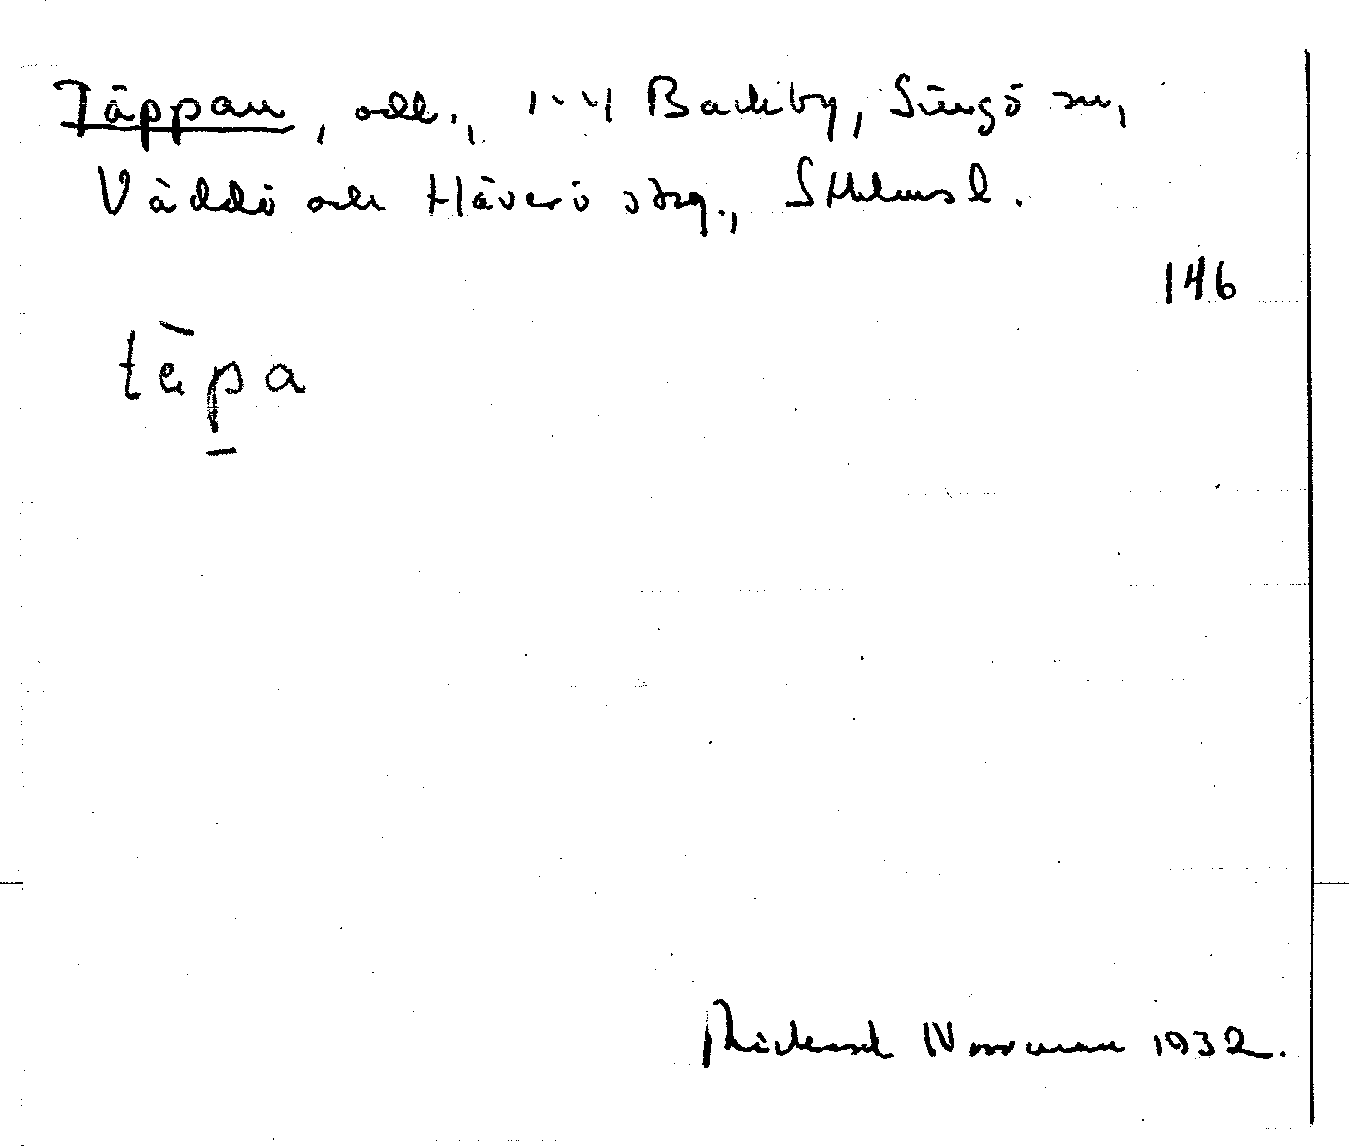 Täppan, odl., 1-4 Backby, Singö sn,
Väddö och Häverö skg., Sthlmsl.
146
tèpa
Rickard Norrman 1932.